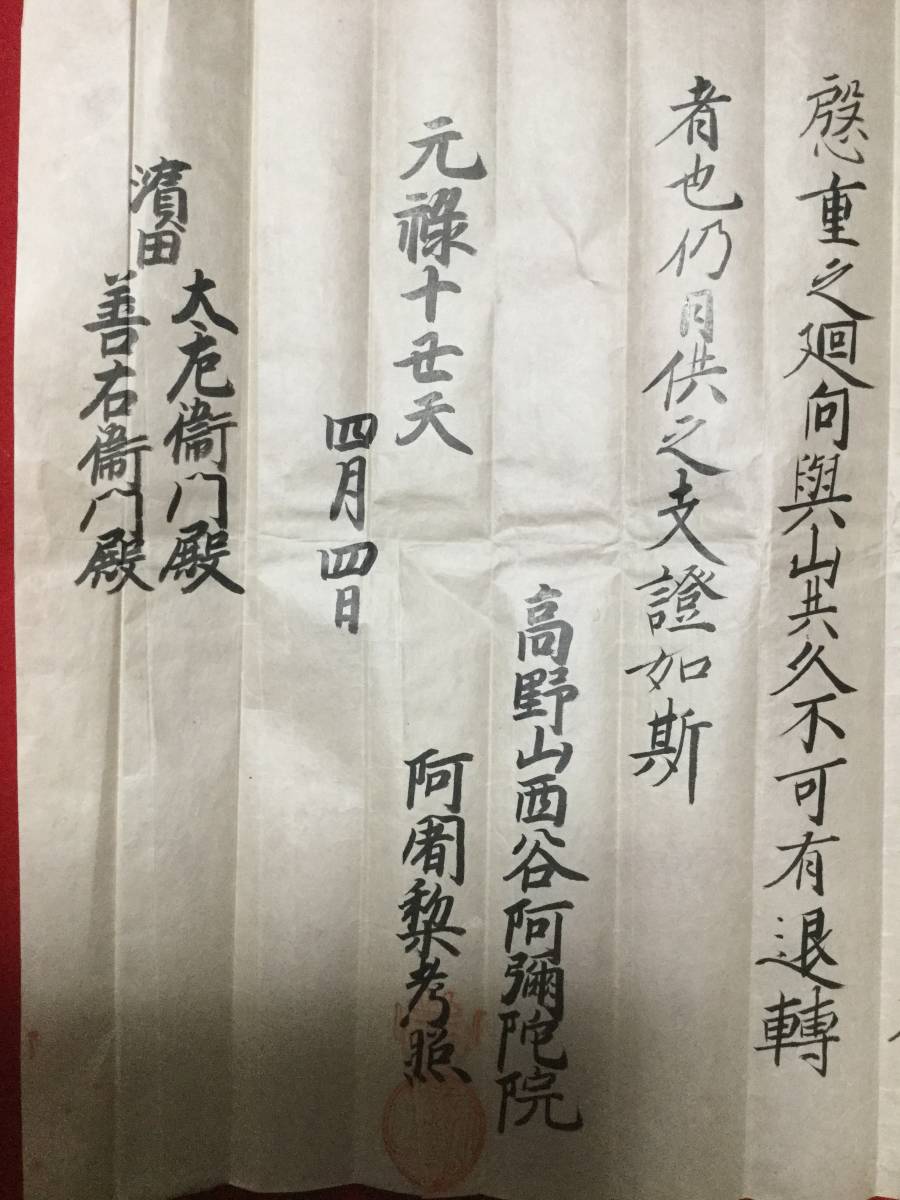 慇重之廻向與山共久不可有退轉
者也仍月供之支證如斯
高野山西谷阿彌陀院
阿闍梨考照
元禄十丑天
四月四日
濱田
大左衞门殿
善右衞门殿